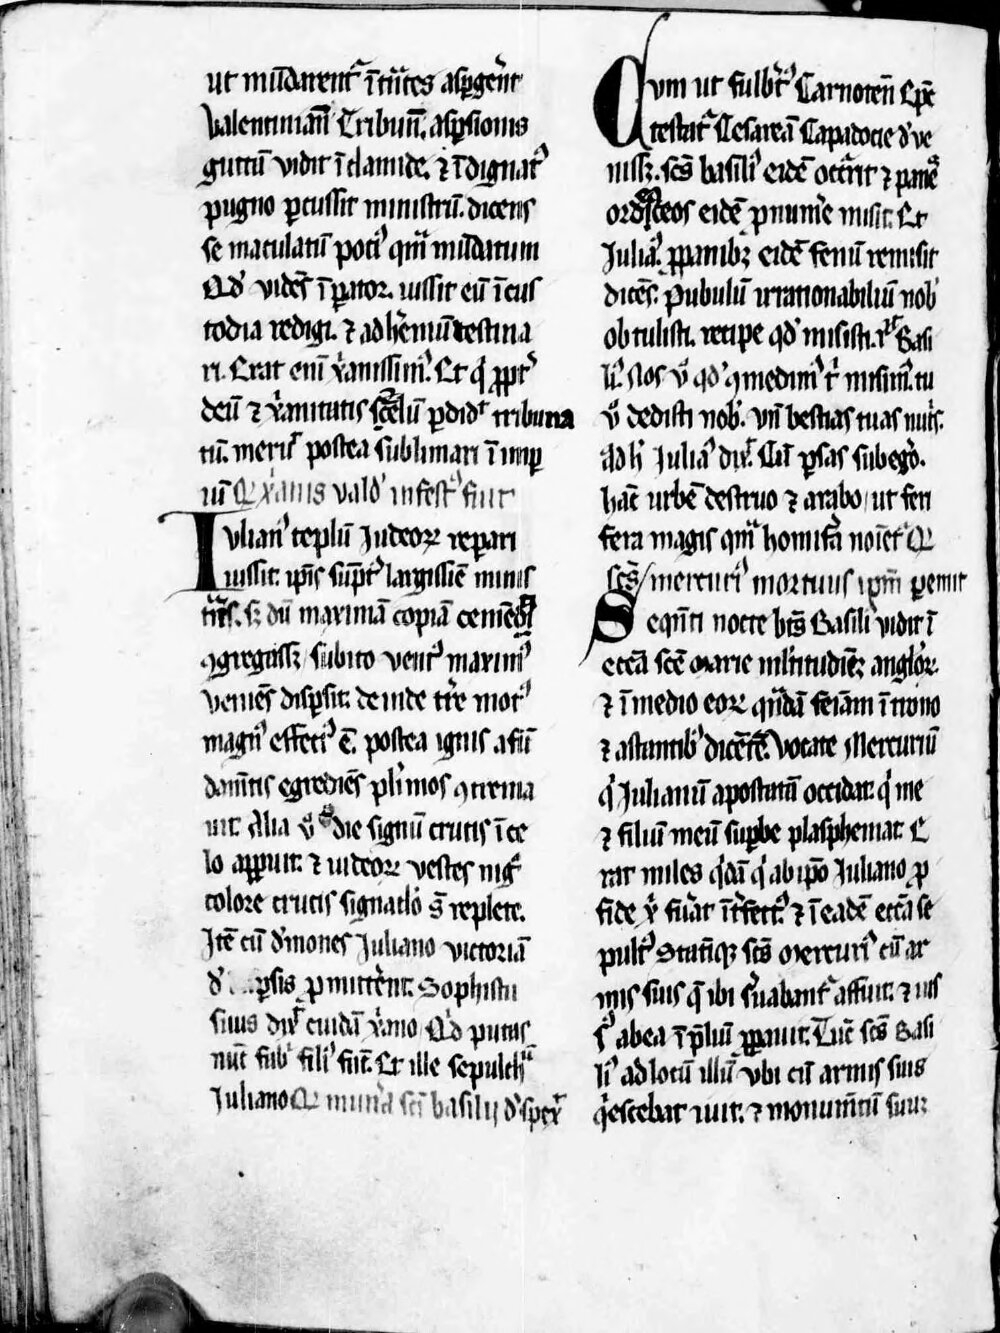 ut mūdarent᷑ ītrātes asꝑgēnt
Valentinianꝰ Tribunꝰ. asꝑsionis
guttū vidit ī clamide. ⁊ īdignatꝰ
pugno ꝑcussit ministrū. dicens
se maculatū potiꝰ qm̄ mūdatum
Qd' vidēs īꝑator. iussit eū ī cus
todia redigi. ⁊ ad hēmū testina
ri. Erat enī xānissimꝰ. Et qꝫ ꝓpt᷑
deū ⁊ xānitatis sc̄elū ꝑdid᷑ tribuna
tū. meruit postea sublimari ī imꝑ
iū Qꝫ xānis vald' infestꝰ fuit
Iulianꝰ teplū Judeoꝝ repari
iussit. ip̄is sūpt᷑ largissīe minis
trās. sꝫ dū maximā copiā cemēti
ꝯgregassꝫ subito ventꝰ maximꝰ
veniēs disꝑsit. deinde t̄re motꝰ
magnꝰ effectꝰ ē. postea ignis a fū
damētis egrediēs pl̄imos ꝯcrema
uit. Alia v̊ die signū crucis ī ce
lo apparuit. ⁊ iudeoꝝ vestes nig̊
colore crucis signaclo s̄ replete.
Itē cū d'mones Juliano victoriā
d' ꝑsis ꝓmittēnt. Sophista
suus dix᷑ cuidā xāno Qd putas
nūc fabꝰ filiꝰ fac̄. Et ille sepulch᷑
Juliano Qꝫ mūera scī basilij d'spex᷑
Cvm ut fulbtꝰ Carnoten̄ Epē
testat᷑ Cesareā Capadocie d've
nissꝫ. sc̄s basiliꝰ eidē occr̄it ⁊ panes
ordeaceos eidē ꝓ munere misit. Et
Julianꝰ ꝓ panibꝫ eidē fenū remisit
dicēs. Pubulū irrationabiliū nob'
obtulisti. recipe qd' misisti. Basi
liꝰ. Nos v̊ qd' ꝯmedimꝰ t' misimꝰ. tu
v̊ dedisti nob'. vn̄ bestias tuas nut's.
Ad h' Julianꝰ dix᷑. Cū ꝑsas subego.
hāc urbē destruo ⁊ arabo ut feri
fera magis qm̄ homifa noīet᷑ Qꝫ
sc̄s mercuriꝰ mortuus ip̄m ꝑemit
Seqn̄ti nocte bt̄s Basiliꝰ vidit ī
eccā sc̄e Marie ml̄titudinē angloꝝ.
⁊ ī medio eoꝝ quādā feīam ī trono
⁊ astantibꝰ dicētē. Vocate Mercuriū
q' Julianū apostatā occidat. q' me
⁊ filiū meū suꝑbe plasphemat. E
rat miles q'dā q' ab ip̄o Juliano ꝓ
fide x' fuāt īt'fectꝰ ⁊ ī eadē eccā se
pultꝰ Statīqꝫ sc̄s Mercuriꝰ cū ar
mis suis q̄ ibi s'uabant᷑ affuit. ⁊ ius
sꝰ ab ea ī p̄liū ꝓꝑauit. Tūc sc̄s Basi
liꝰ ad locū illū vbi cū armis suis
q'escebat iuit. ⁊ monumn̄tū suuꝫ